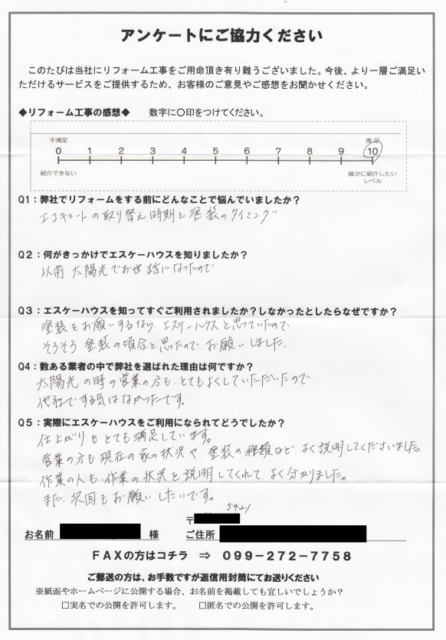 アンケートにご協力ください
このたびは当社にリフォーム工事をご用命頂き有り難うございました。今後、より一層ご満足い
ただけるサービスをご提供するため、お客様のご意見やご感想をお聞かせください。
◆リフォーム工事の感想◆ 数字に○印をつけてください。
不満足 満足
0 1 2 3 4 5 6 7 8 9 10
紹介できない 誰かに紹介したい
レベル
Q1：弊社でリフォームをする前にどんなことで悩んでいましたか？
エコキュートの取り替え時期と塗装のタイミング
Q2：何がきっかけでエスケーハウスを知りましたか？
以前太陽光でお世話になったので
Q3：エスケーハウスを知ってすぐご利用されましたか？しなかったとしたらなぜですか？
塗装をお願いするなら エスケーハウスと思っていたので、
そろそろ 塗装の頃合と思ったので お願いしました。
Q4：数ある業者の中で弊社を選ばれた理由は何ですか？
太陽光の時の営業の方も、とてもよくしていただいたので、
他社でする気はなかったです。
Q5：実際にエスケーハウスをご利用になられてどうでしたか？
仕上がりもとても満足しています。
営業の方も現在の家の状況や、塗装の種類など、よく説明してくださいました。
作業の人も、作業の状況を説明してくれて、よく分かりました。
また、次回もお願いしたいです。
〒 5421
お名前 様 ご住所
FAXの方はコチラ ⇒ 099-272-7758
ご郵送の方は、お手数ですが返信用封筒にてお送りください
※紙面やホームページに公開する場合、お名前を掲載しても宜しいでしょうか？
□実名での公開を許可します。 □匿名での公開を許可します。